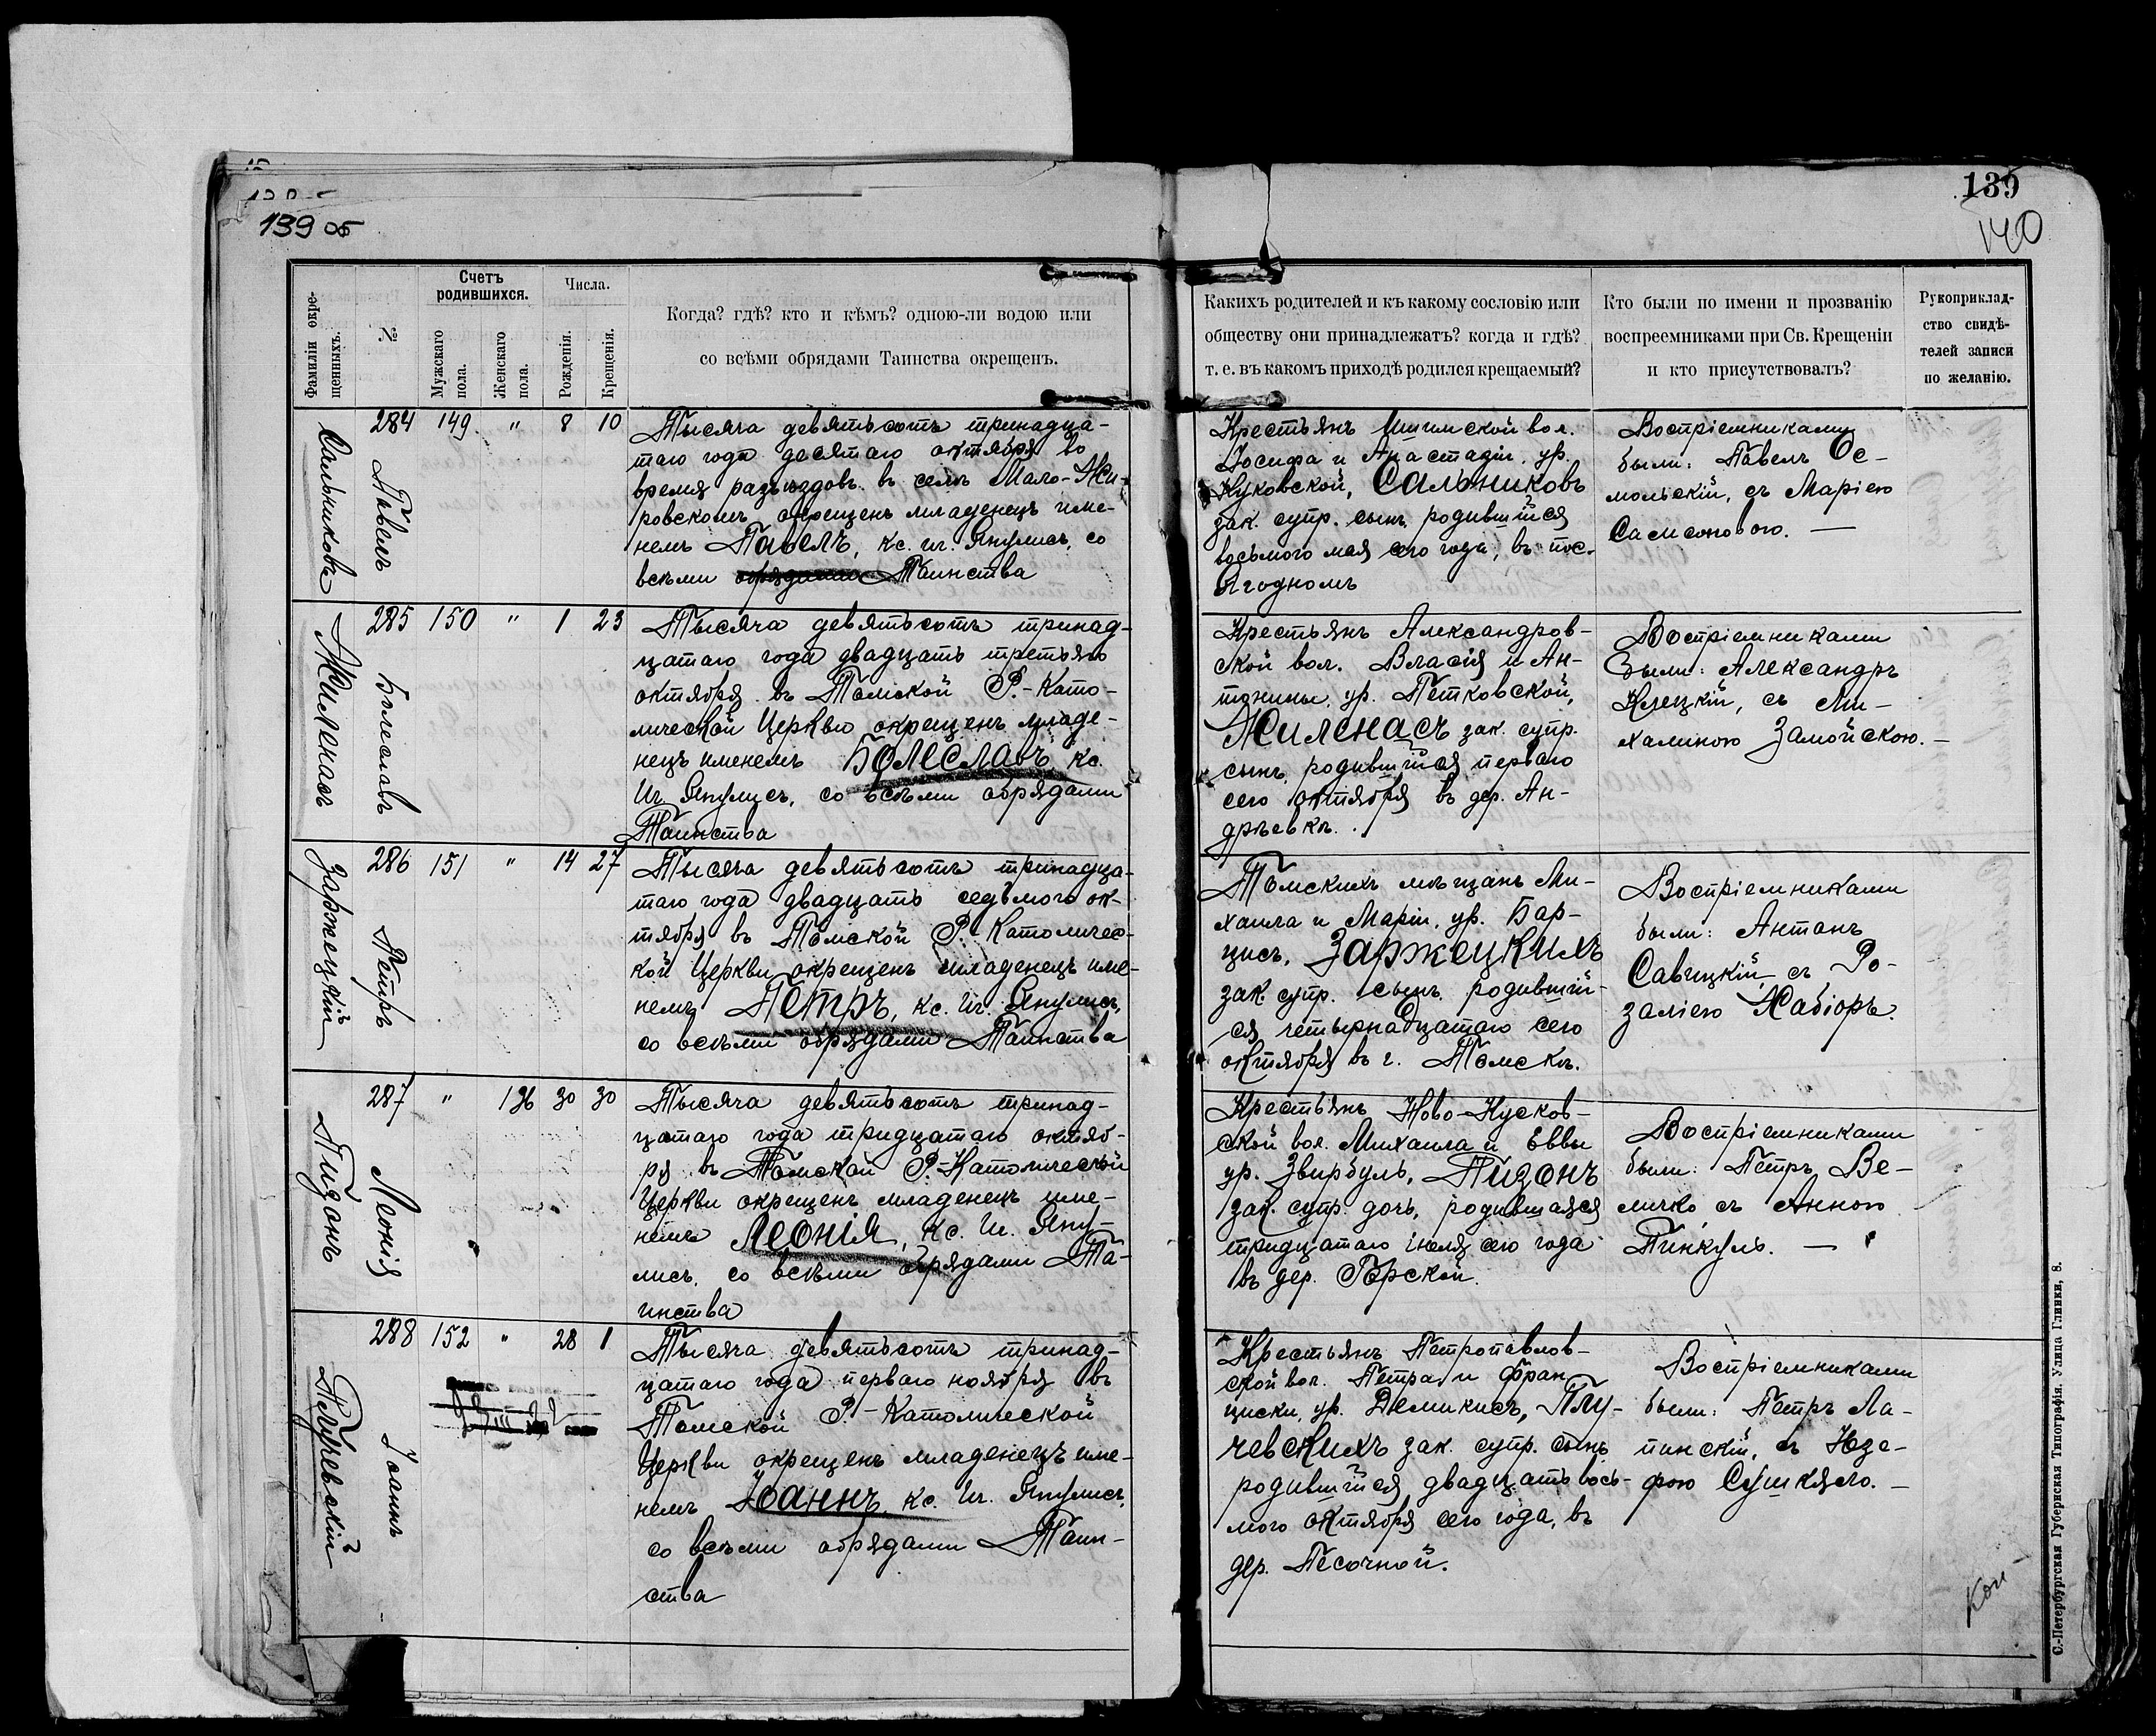 139 об
139
140
Фамиліи окре-
щенныхъ.
№.
Счетъ
родившихся.
Мужскаго
пола.
Женскаго
пола.
Числа.
Рожденія.
Крещенія.
Когда? гдѣ? кто и кѣмъ? одною-ли водою или
со всѣми обрядами Таинства окрещенъ.
Какихъ родителей и къ какому сословію или
обществу они принадлежатъ? когда и гдѣ?
т. е. въ какомъ приходѣ родился крещаемый?
Кто были по имени и прозванію
воспреемниками при Св. Крещеніи
и кто присутствовалъ?
Рукоприклад-
ство свидѣ-
телей записи
по желанію.
Сальниковъ
284 149 " 8 10
Павелъ
Тысяча девятьсотъ тринадца-
таго года десятаго октября во
время разъѣздовъ въ селѣ Мало-Жи-
ровскомъ окрещенъ младенецъ име-
немъ Павелъ, кс. Іг. Янулисъ, со
всѣми обрядами Таинства
Крестьянъ Ишимской вол.
Іосифа и Анастазіи, ур.
Жуковской, Сальниковъ
зак. супр. сынъ, родившійся
восьмого мая сего года, въ пос.
Ягодномъ
Воспріемниками
были: Павелъ Ос-
мольскій, съ Маріею
Самсоновою. —
Жиленасъ
285 150 " 1 23
Болеславъ
Тысяча девятьсотъ тринад-
цатаго года двадцать третьяго
октября въ Томской Р.-Като-
лической Церкви окрещенъ младе-
нецъ именемъ Болеславъ, кс.
Іг. Янулисъ, со всѣми обрядами
Таинства
Крестьянъ Александров-
ской вол. Власія и Ан-
тонины, ур. Петковской,
Жиленасъ зак. супр.
сынъ, родившійся перваго
сего октября въ дер. Ан-
дреевкѣ.
Воспріемниками
были: Александръ
Клецкій, съ Ми-
халиною Замойскою. —
Заржецкій
286 151 " 14 27
Петръ
Тысяча девятьсотъ тринадца-
таго года двадцать седьмого ок-
тября въ Томской Р.-Католичес-
кой Церкви окрещенъ младенецъ име-
немъ Петръ, кс. Іг. Янулисъ,
со всѣми обрядами Таинства
Томскихъ мѣщанъ Ми-
хаила и Маріи, ур. Бар-
цисъ, Заржецкихъ
зак. супр. сынъ, родившій-
ся четырнадцатаго сего
октября въ г. Томскѣ.
Воспріемниками
были: Антонъ
Савицкій, съ Ро-
заліею Жабіоръ.
Пизонъ
287 " 136 30 30
Леонія
Тысяча девятьсотъ тринад-
цатаго года тридцатаго октяб-
ря въ Томской Р.-Католической
Церкви окрещенъ младенецъ име-
немъ Леонія, кс. Іг. Яну-
лисъ, со всѣми обрядами Та-
инства
Крестьянъ Ново-Кусков-
ской вол. Михаила и Еввы
ур. Звирбуль, Пизонъ
зак. супр. дочь, родившаяся
тридцатаго іюля сего года
въ дер. Борской.
Воспріемниками
были: Петръ Ве-
личко съ Анною
Пинкуль. —
Плучевскій
288 152 " 28 1
Іоаннъ
Тысяча девятьсотъ тринад-
цатаго года перваго ноября въ
Томской Р.-Католической
Церкви окрещенъ младенецъ име-
немъ Іоаннъ, кс. Іг. Янулисъ,
со всѣми обрядами Таин-
ства
Крестьянъ Петропавлов-
ской вол. Петра и Фран
циски, ур. Демикисъ, Плу-
чевскихъ зак. супр. сынъ,
родившійся двадцать вось-
мого октября сего года, въ
дер. Песочной.
Воспріемниками
были: Петръ Ла-
пинскій, съ Юзе-
фою Сушкяло. —
коп
С.-Петербургская Губернская Типографія, Улица Глинки, 8.